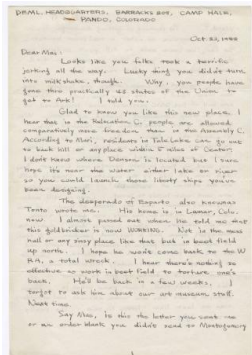 DBML, HEADQUARTERS, BARRACKS BOX, CAMP HALE,
PANDO, COLORADO
Oct. 23, 1942
Dear Mac:
Looks like you folks took a terrific
jerking all the way. Lucky thing you didn't turn
into milk shake, though. Why, you people have
gone thro practically 42 states of the Union to
get to Ark! I told you.
Glad to know you like this new place. I
hear that in the Relocation C. people are allowed
comparatively more freedom than in the Assembly C.
According to Mori, residents in Tule Lake can go out
to back hill or any place within 5 miles of Center.
I don't know where Denson is located but I sure
hope it's near the water either lake or river
so you could launch those liberty ships you've
been designing.
The desperado of Boparto also
Tento wrote me. His home is in Lamar, Colo.
now. I almost passed out when he told me that
this goldbricker is now WORKING. Not in the mess
hall or any rinsy place like that but in beet field
up north. I hope he won't come back to the W
RA, a total wreck. I hear there's nothing so
effective as work in beet field to torture one's
back. He'll be back in a few weeks. I
forgot to ask him about our art museum stuff.
Next time.
Say Mac, is this the letter you sent me
or an order blank you didn't send to Montgomery